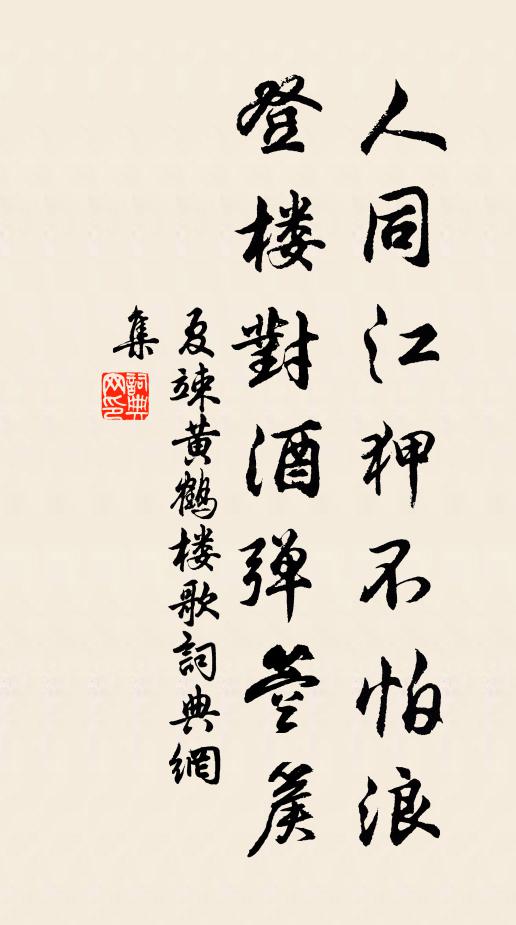 人同江狎不怕浪
登楼對酒弹箜篌
夏竦黄鶴楼歌詞典網
集
詞典网印